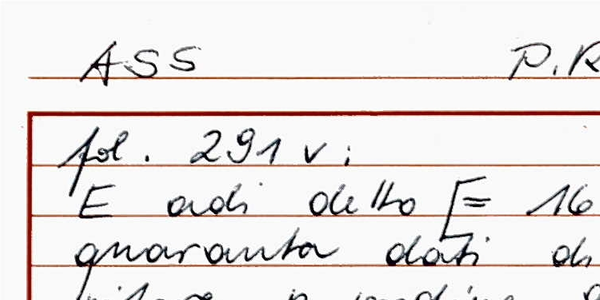 ASS P.R
fol. 291 v:
E adi detto [= 16
quaranta dati di